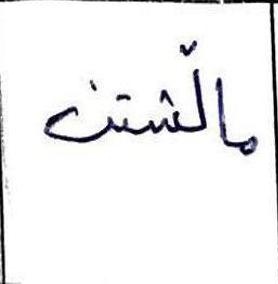 مالّشتن